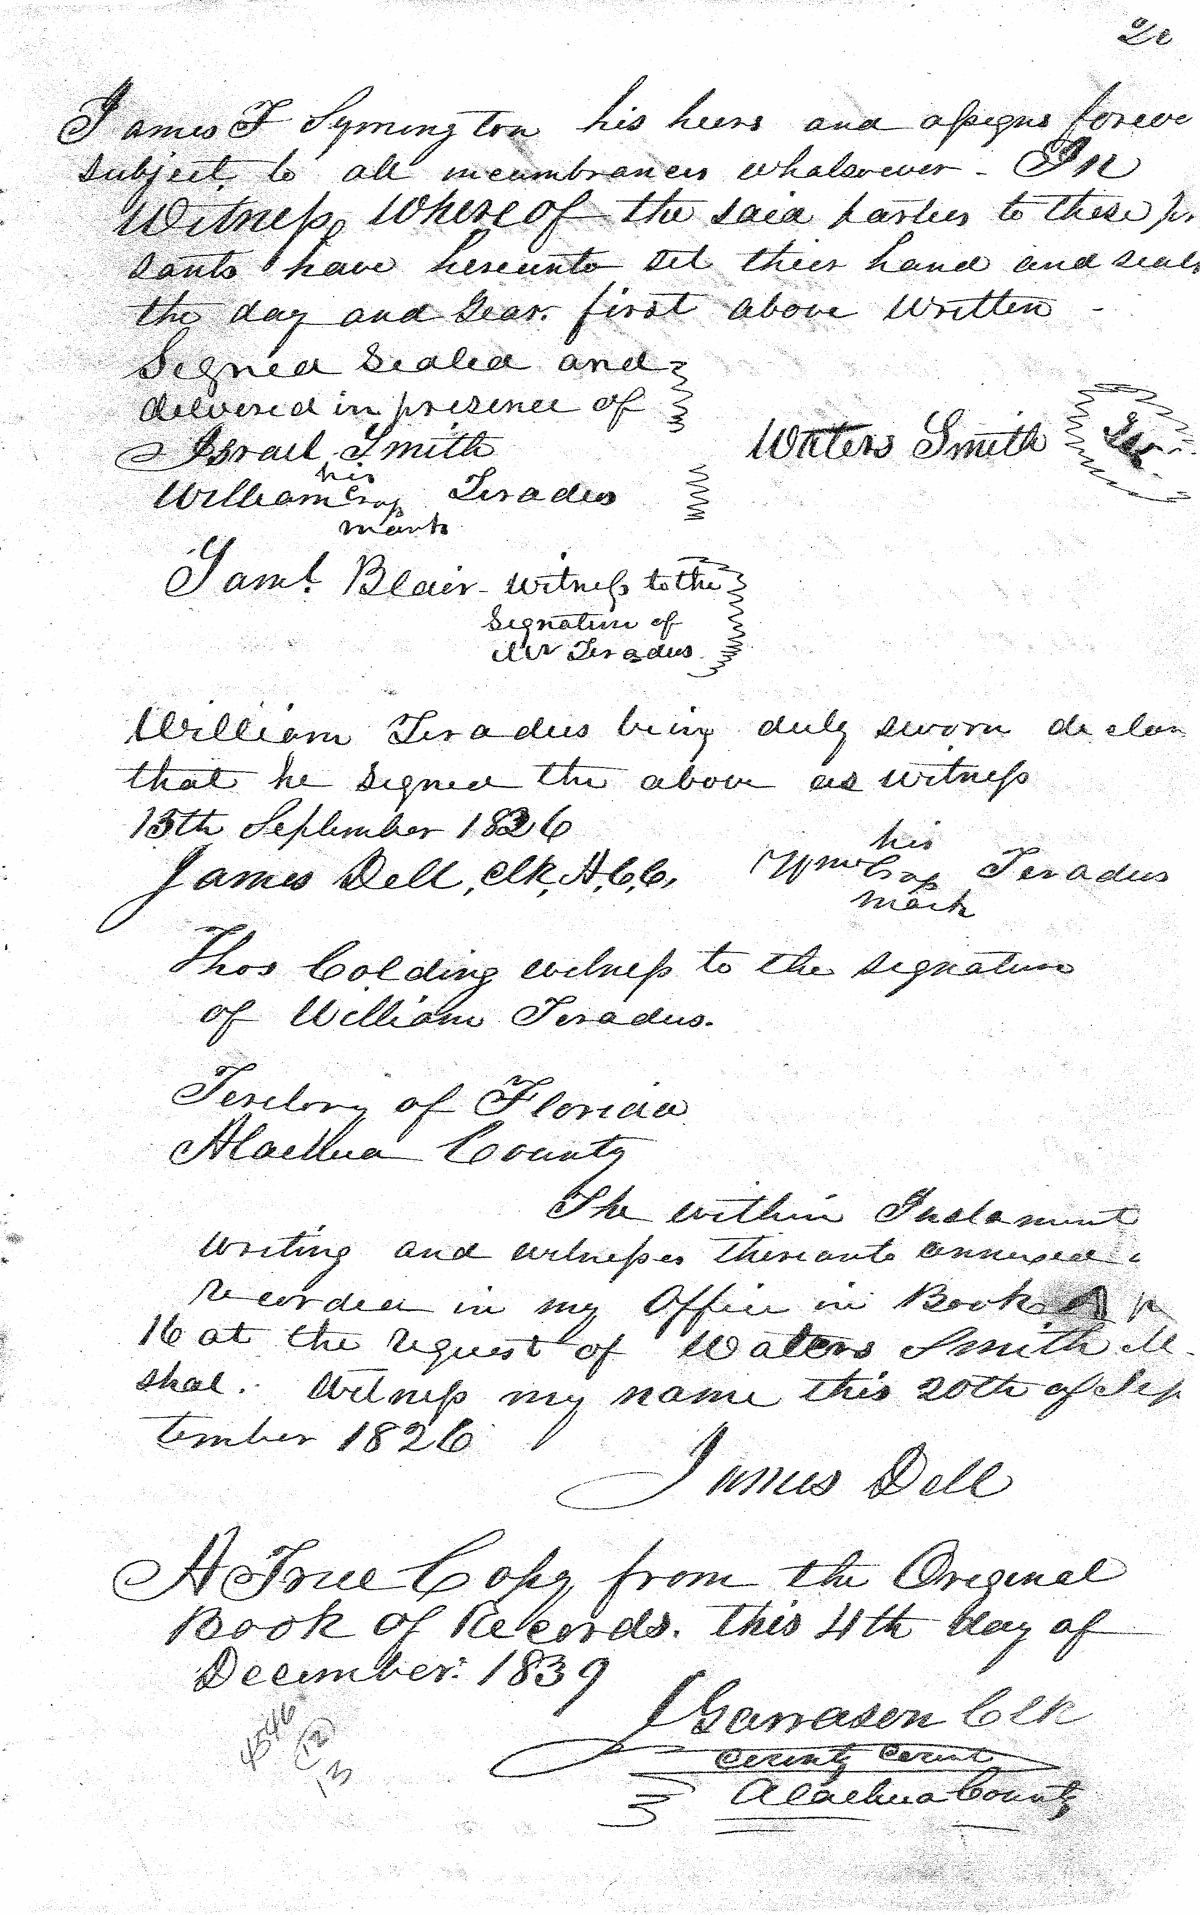 James F Symington his heirs and assigns foreve
subject to all incumbrances whatsoever - In
Witness Whereof the said parties to these pr
sants have hereunto set their hand and seals
the day and year first above written -
Signed Sealed and
delivered in presence of
Israel Smith
Waters Smith
his
William Cros Teradus
mark
Saml. Blair - witness to the
Signature of
Mr Teradus
William Teradus being duly sworn declar
that he signed the above as witness
15th September 1826
James Dell, Clk, A, C, C,
his
Wm Cros Teradus
mark
Thos Colding witness to the signature
of William Teradus.
Teritory of Florida
Alachua County
The within Instament
writing and witnesses thereunto annexed
recorded in my Office in Book A p
16 at the request of Waters Smith M
shal. Witness my name this 20th of Sep
tember 1826
James Dell
A True Copy from the Original
Book of Records. this 4th day of
December. 1839
J Garrason Clk
County Court
Alachua County
4546
12
13